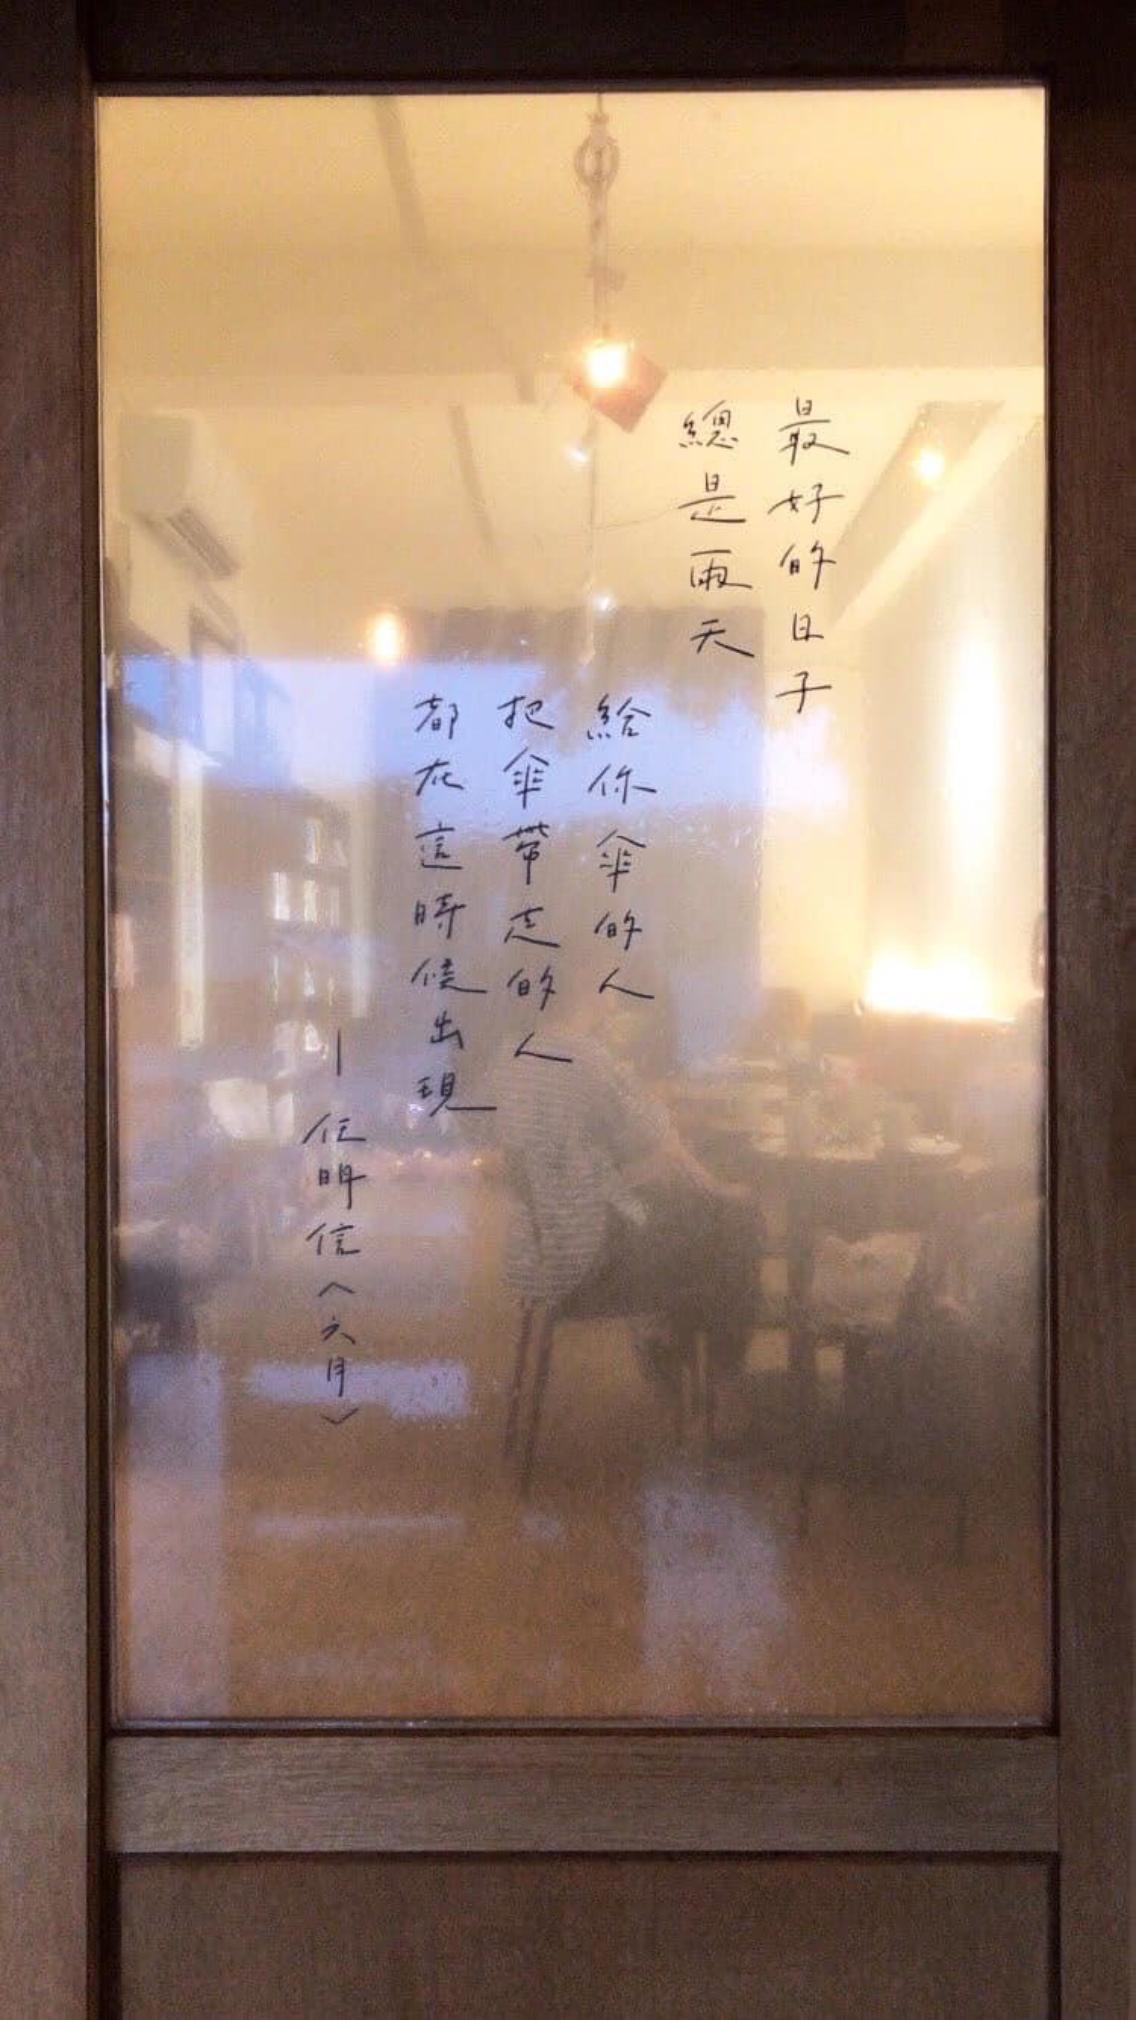 最好的日子
總是雨天
給你傘的人
把傘帶走的人
都在這時候出現
—任明信〈六月〉